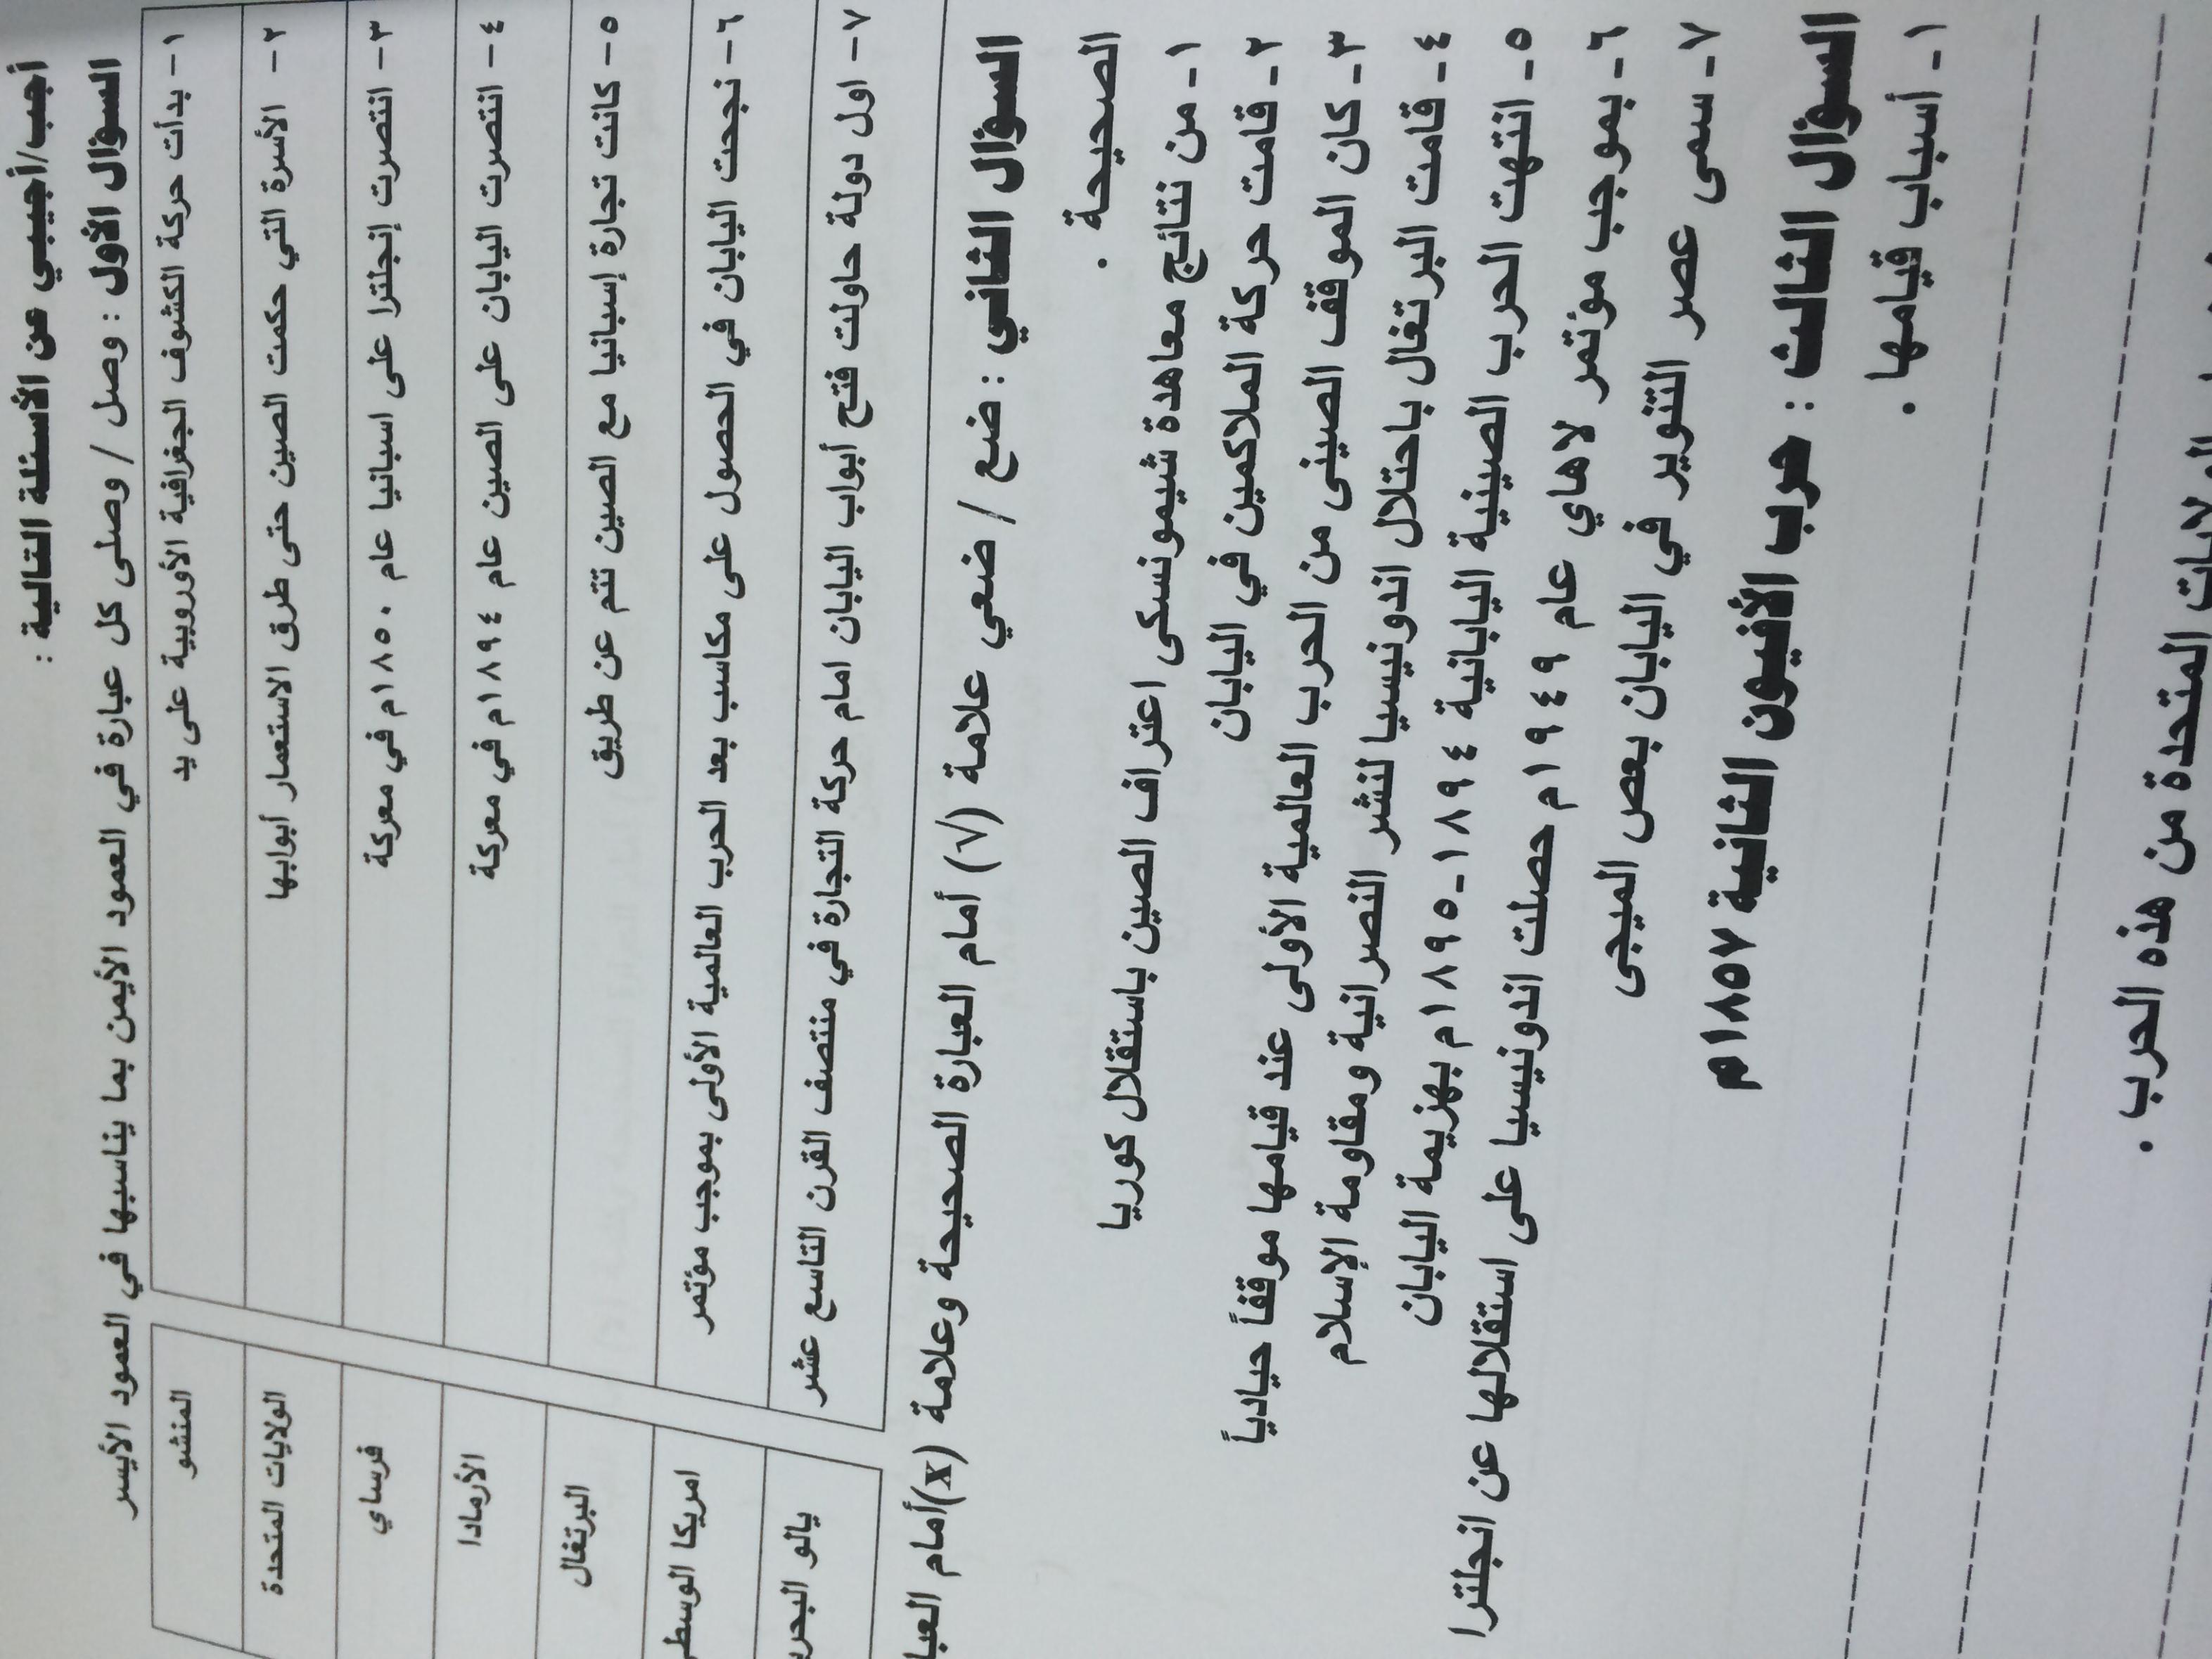 أجب/أجيبي عن الأسئلة التالية :
السؤال الأول : وصل / وصلى كل عبارة في العمود الأيمن بما يناسبها في العمود الأيسر
١- بدأت حركة الكشوف الجغرافية الأوروبية على يد
المنشو
٢- الأسرة التي حكمت الصين حتى طرق الاستعمار أبوابها
الولايات المتحدة
٣- انتصرت إنجلترا على اسبانيا عام ١٨٥٠م في معركة
فرساي
٤- انتصرت اليابان على الصين عام ١٨٩٤م في معركة
الأرمادا
٥- كانت تجارة إسبانيا مع الصين تتم عن طريق
البرتغال
٦- نجحت اليابان في الحصول على مكاسب بعد الحرب العالمية الأولى بموجب مؤتمر
امريكا الوسط
٧- اول دولة حاولت فتح أبواب اليابان امام حركة التجارة في منتصف القرن التاسع عشر
يالو البحر
السؤال الثاني : ضع / ضعي علامة (√) أمام العبارة الصحيحة وعلامة (X)أمام العبا
الصحيحة .
١- من نتائج معاهدة شيمونسكى اعتراف الصين باستقلال كوريا
٢- قامت حركة الملاكمين في اليابان
٣- كان الموقف الصينى من الحرب العالمية الأولى عند قيامها موقفاً حيادياً
٤- قامت البرتغال باحتلال اندونيسيا لنشر النصرانية ومقاومة الإسلام
٥- انتهت الحرب الصينية اليابانية ١٨٩٤-١٨٩٥م بهزيمة اليابان
٦- بموجب مؤتمر لاهاي عام ١٩٤٩م حصلت اندونيسيا على استقلالها عن انجلترا
٧- سمى عصر التنوير في اليابان بعص الميجى
السؤال الثالث : حرب الأفيون الثانية ١٨٥٧م
١- أسباب قيامها .
المتحدة من هذه الحرب .